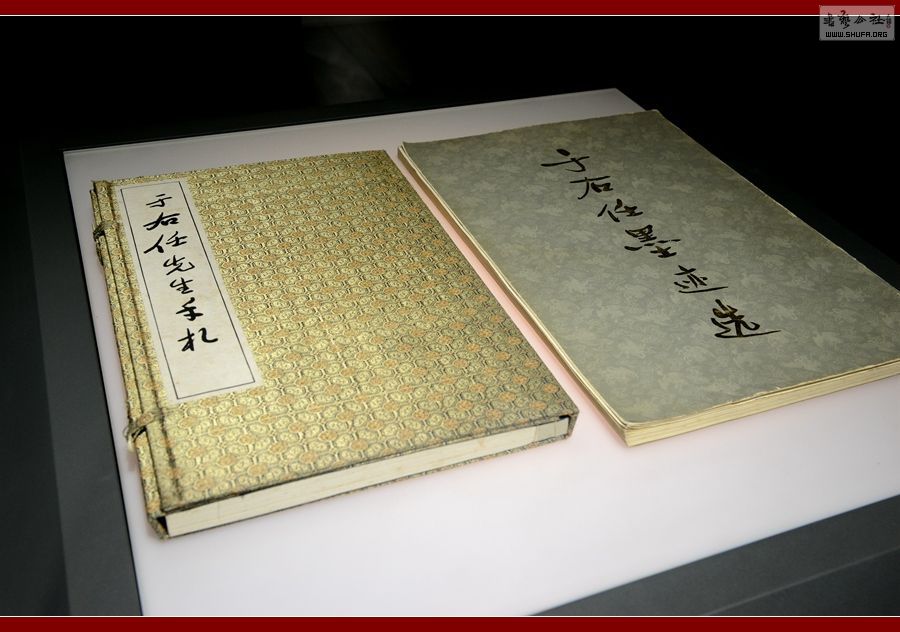 于右任先生手札
于右任墨迹选
書藝公社
WWW.SHUFA.ORG